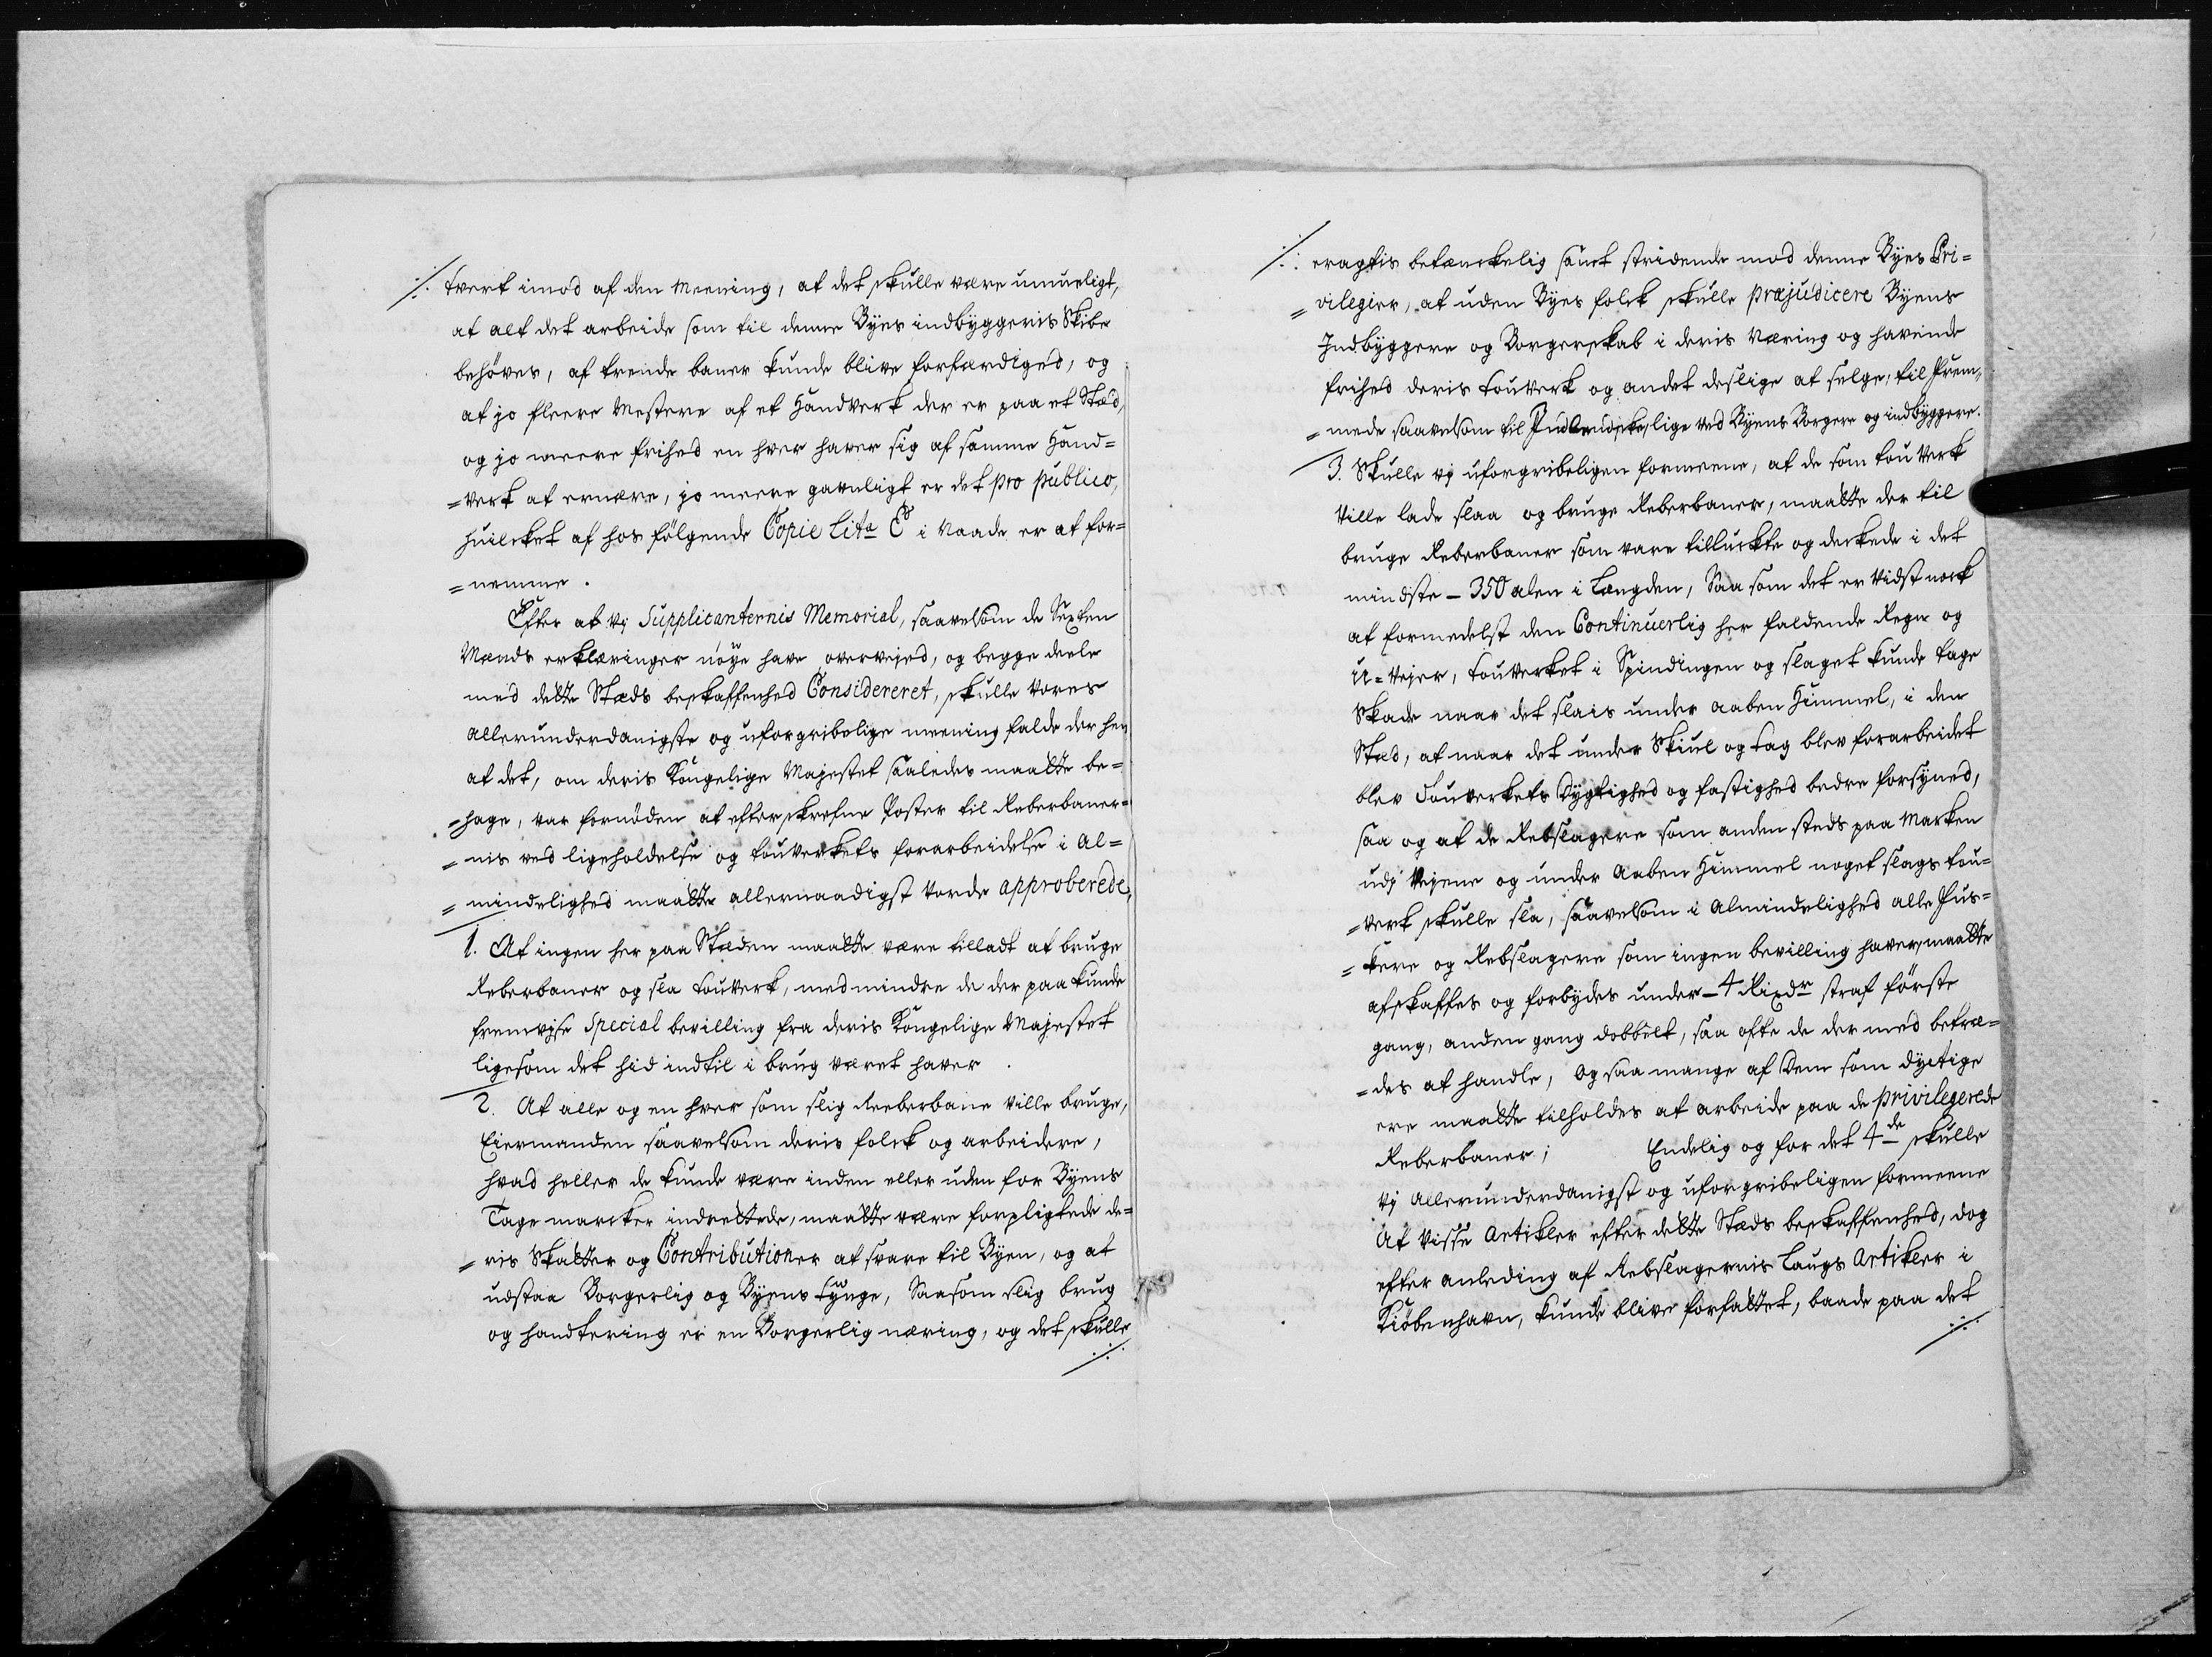 tvert imod af den Meening, at det skulle være umueligt,
at alt det arbeide som til denne Byes indbyggeris Skibe
behöves, af trende baner kunde blive forfærdiged, og
at jo fleere Mestere af et Handverk der er paa et Stæd,
og jo meere frihed en hver haver sig af samme Hand=
=verk at ernære, jo meere gavnligt er det pro publico,
huilcket af hos følgende Copie Lit:a C i Naade er at for=
=nemme.
Efter at Vj Supplicanternis Memorial, saavelsom de Sexten
Mænds erklæringer nöye have overvejed, og begge deele
med dette Stæds beskaffenhed Considereret, skulle vores
allerunderdanigste og uforgribelige meening falde der hen
at det, om deris Kongelige Majestet saaledes maatte be=
=hage, var fornöden at efterskrefne Poster til Reberbaner=
=nis ved ligeholdelse og touverkets forarbeidelse i Al=
=mindelighed maatte allernaadigst vorde approberede,
1. At ingen her paa Stæden maatte være tilladt at bruge
Reberbaner og sla touverk, medmindre de der paa kunde
fremvise Special bevilling fra deris Kongelige Majestet
ligesom det hid indtil i brug været haver.
2. At alle og en hver som slig Reeberbane ville bruge,
Eiermanden saavelsom deris folck og arbeidere,
hvad heller de kunde være inden eller uden for Byens
Tage marcker indrettede, maatte være forpligtede de=
=ris Skatter og Contributioner at svare til Byen, og at
udstaa Borgerlig og Byens tynge, Saasom slig brug
og handtering er en Borgerlig næring, og det skulle
eragtis betænckelig samt stridende mod denne Byes Pri=
=vilegier, at uden Byes folck skulle præjudicere Byens
Indbyggere og Borgerskab i deris Næring og havende
frihed deris touverk og andet deslige at selge, til Frem=
=mede saavelsom til Indlendske, lige ved Byens Borgere og indbyggere.
3. Skulle vj uforgribeligen formeene, at de som touverk
ville lade slaa og bruge Reberbaner, maatte der til
bruge Reberbaner som vare tilluckte og deckede i det
mindste - 350 alen i Længden, Saa som det er vidst nock
at formedelst den Continuerlig her faldende Regn og
U=vejer, touverket i Spindingen og slaget kunde tage
Skade naar det slais under aaben Himmel, i den
Sted, at naar det under Skiul og tag blev forarbeidet
blev touverkets Dygtighed og fastighed bedre forsyned,
saa og at de Rebslagere som anden steds paa Marken
udj Vejene og under Aaben Himmel noget slags tou=
=verk skulle sla, saavelsom i Almindelighed alle Fus=
=kere og Rebslagere som ingen bevilling haver, maatte
afskaffes og forbydes under - 4 Rixdr straf förste
gang, anden gang dobbelt, saa ofte de der med betræ=
=des at handle, og saa mange af dem som dyctige
ere maatte tilholdes at arbeide paa de privilegerede
Reberbaner; Endelig og for det 4de skulle
vj allerunderdanigst og uforgribeligen formeene
At visse Artikler efter dette Stæds beskaffenhed, dog
efter anleding af Rebslagernis Laugs Artikler i
Kiöbenhavn, kunde blive forfattet, baade paa det